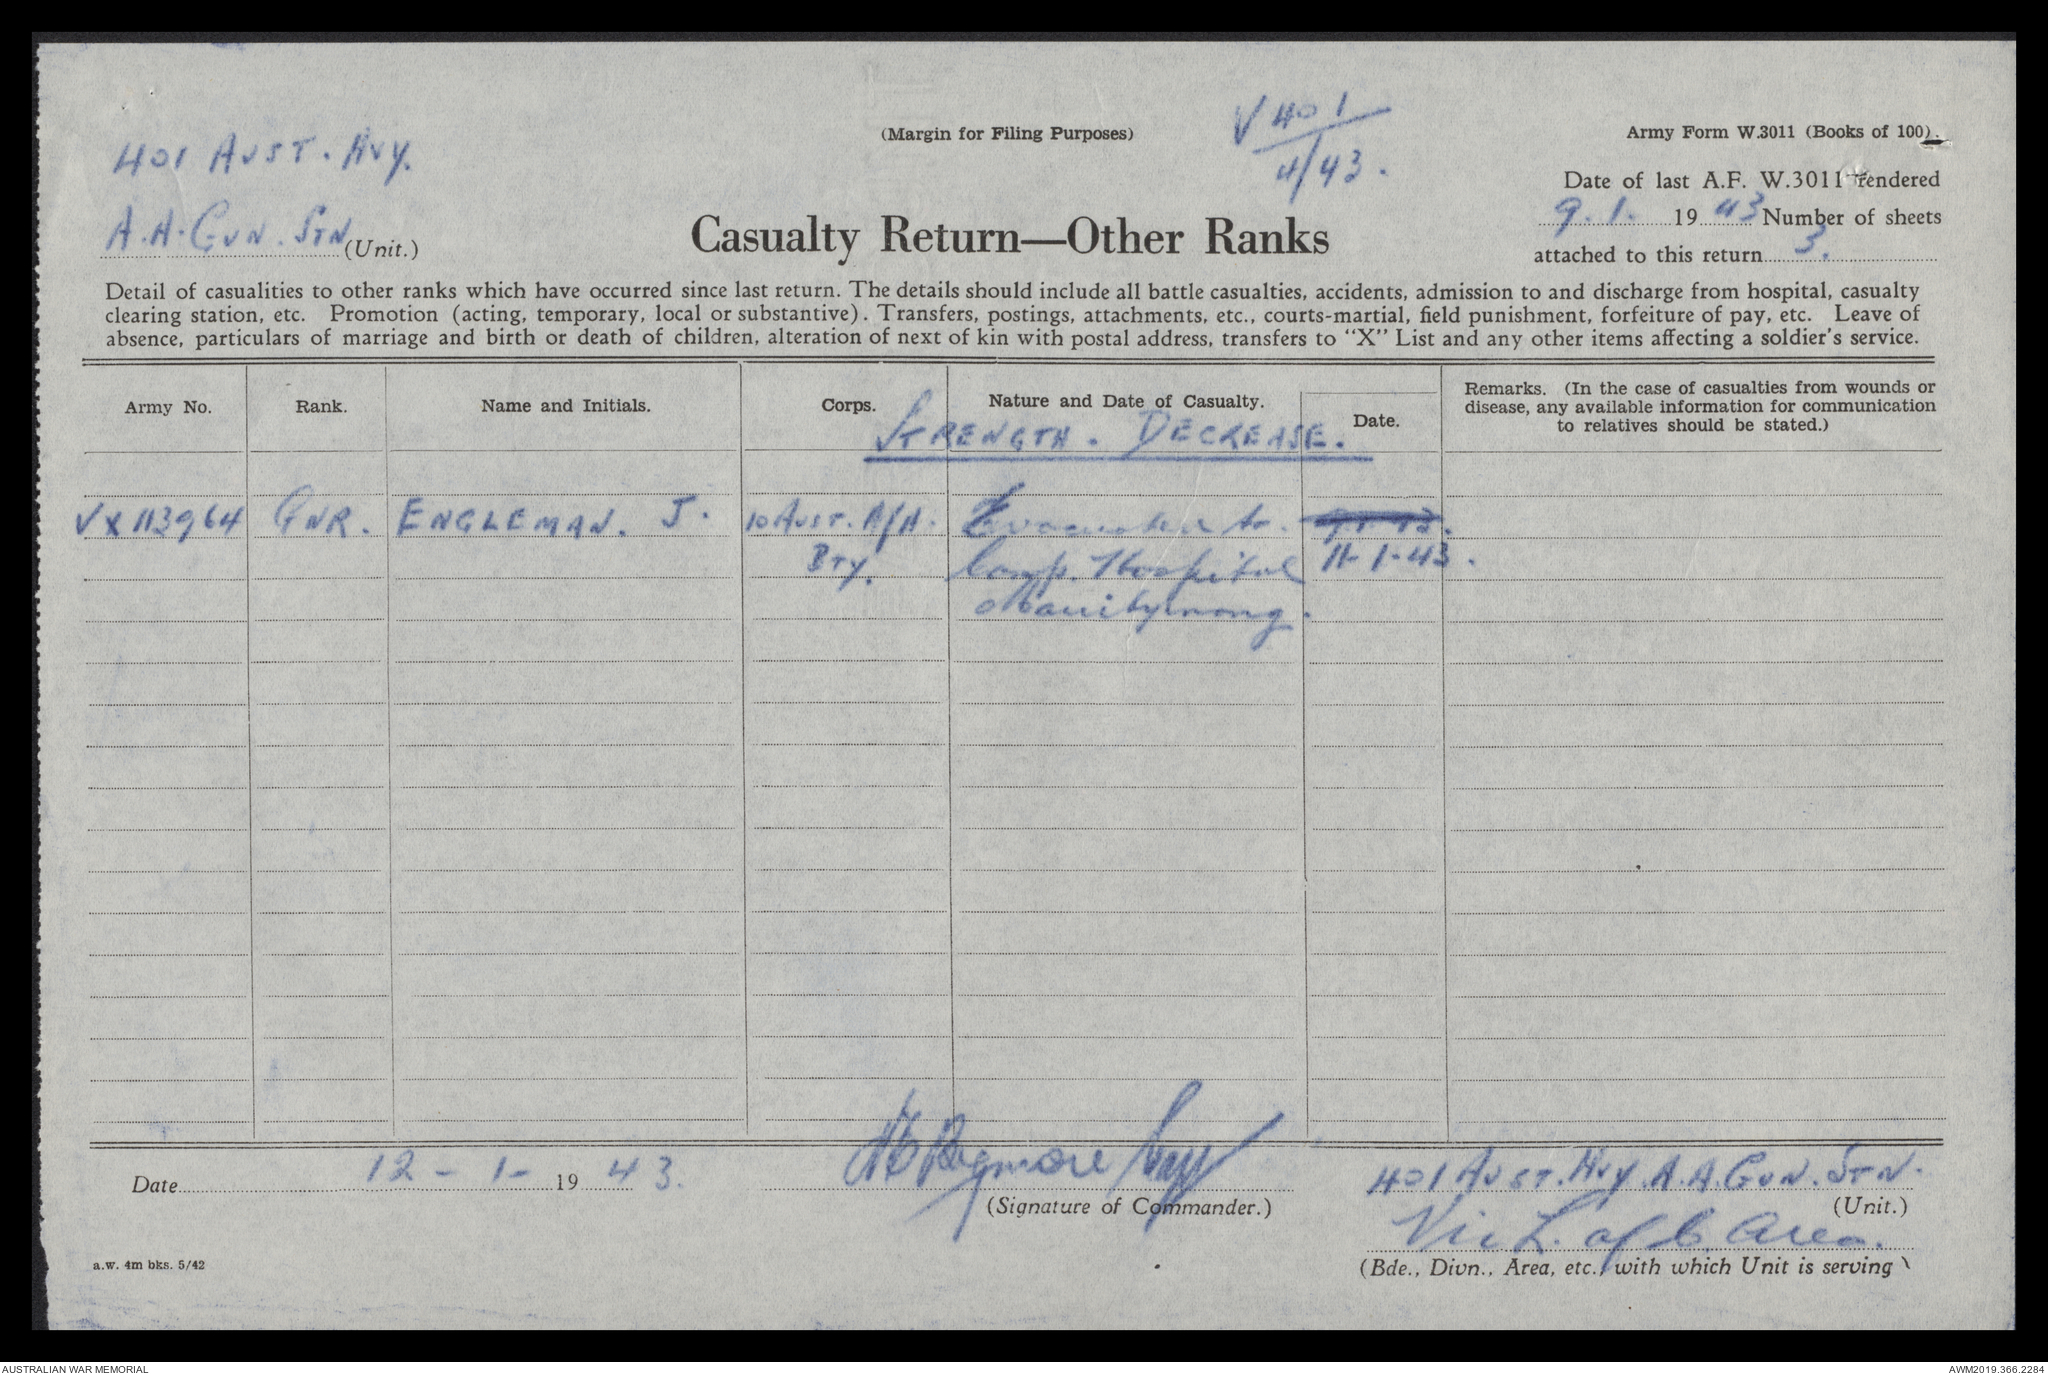 (Margin for Filing Purposes)
V 401
4/43.
Army Form W.3011 (Books of 100).
401 AUST. HVY.
A.A. GUN. STN (Unit.)
Casualty Return—Other Ranks
Date of last A.F. W.3011 rendered
9. 1. 19 43 Number of sheets
attached to this return 3.
Detail of casualities to other ranks which have occurred since last return. The details should include all battle casualties, accidents, admission to and discharge from hospital, casualty
clearing station, etc. Promotion (acting, temporary, local or substantive). Transfers, postings, attachments, etc., courts-martial, field punishment, forfeiture of pay, etc. Leave of
absence, particulars of marriage and birth or death of children, alteration of next of kin with postal address, transfers to "X" List and any other items affecting a soldier's service.
Army No. Rank. Name and Initials. Corps. Nature and Date of Casualty. Date. Remarks. (In the case of casualties from wounds or
disease, any available information for communication
to relatives should be stated.)
STRENGTH. DECREASE.
VX 113964 GNR. ENGLEMAN. J. 10 AUST. A/A. Evacuated to
BTY. Camp. Hospital 11-1-43.
12-1-19 43.
Date
(Signature of Commander.)
401 AUST. HVY. A.A. GUN. STN.
(Unit.)
Vic L. of C. Area.
(Bde., Divn., Area, etc., with which Unit is serving
a.w. 4m bks. 5/42
AUSTRALIAN WAR MEMORIAL
AWM2019.366.2284